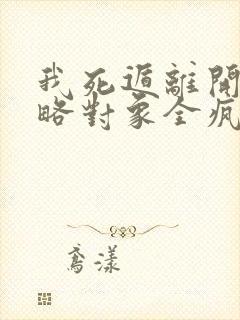 我死遁離開
略對象全瘋
鳶漾